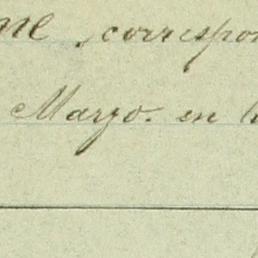 correspon
Marzo. en